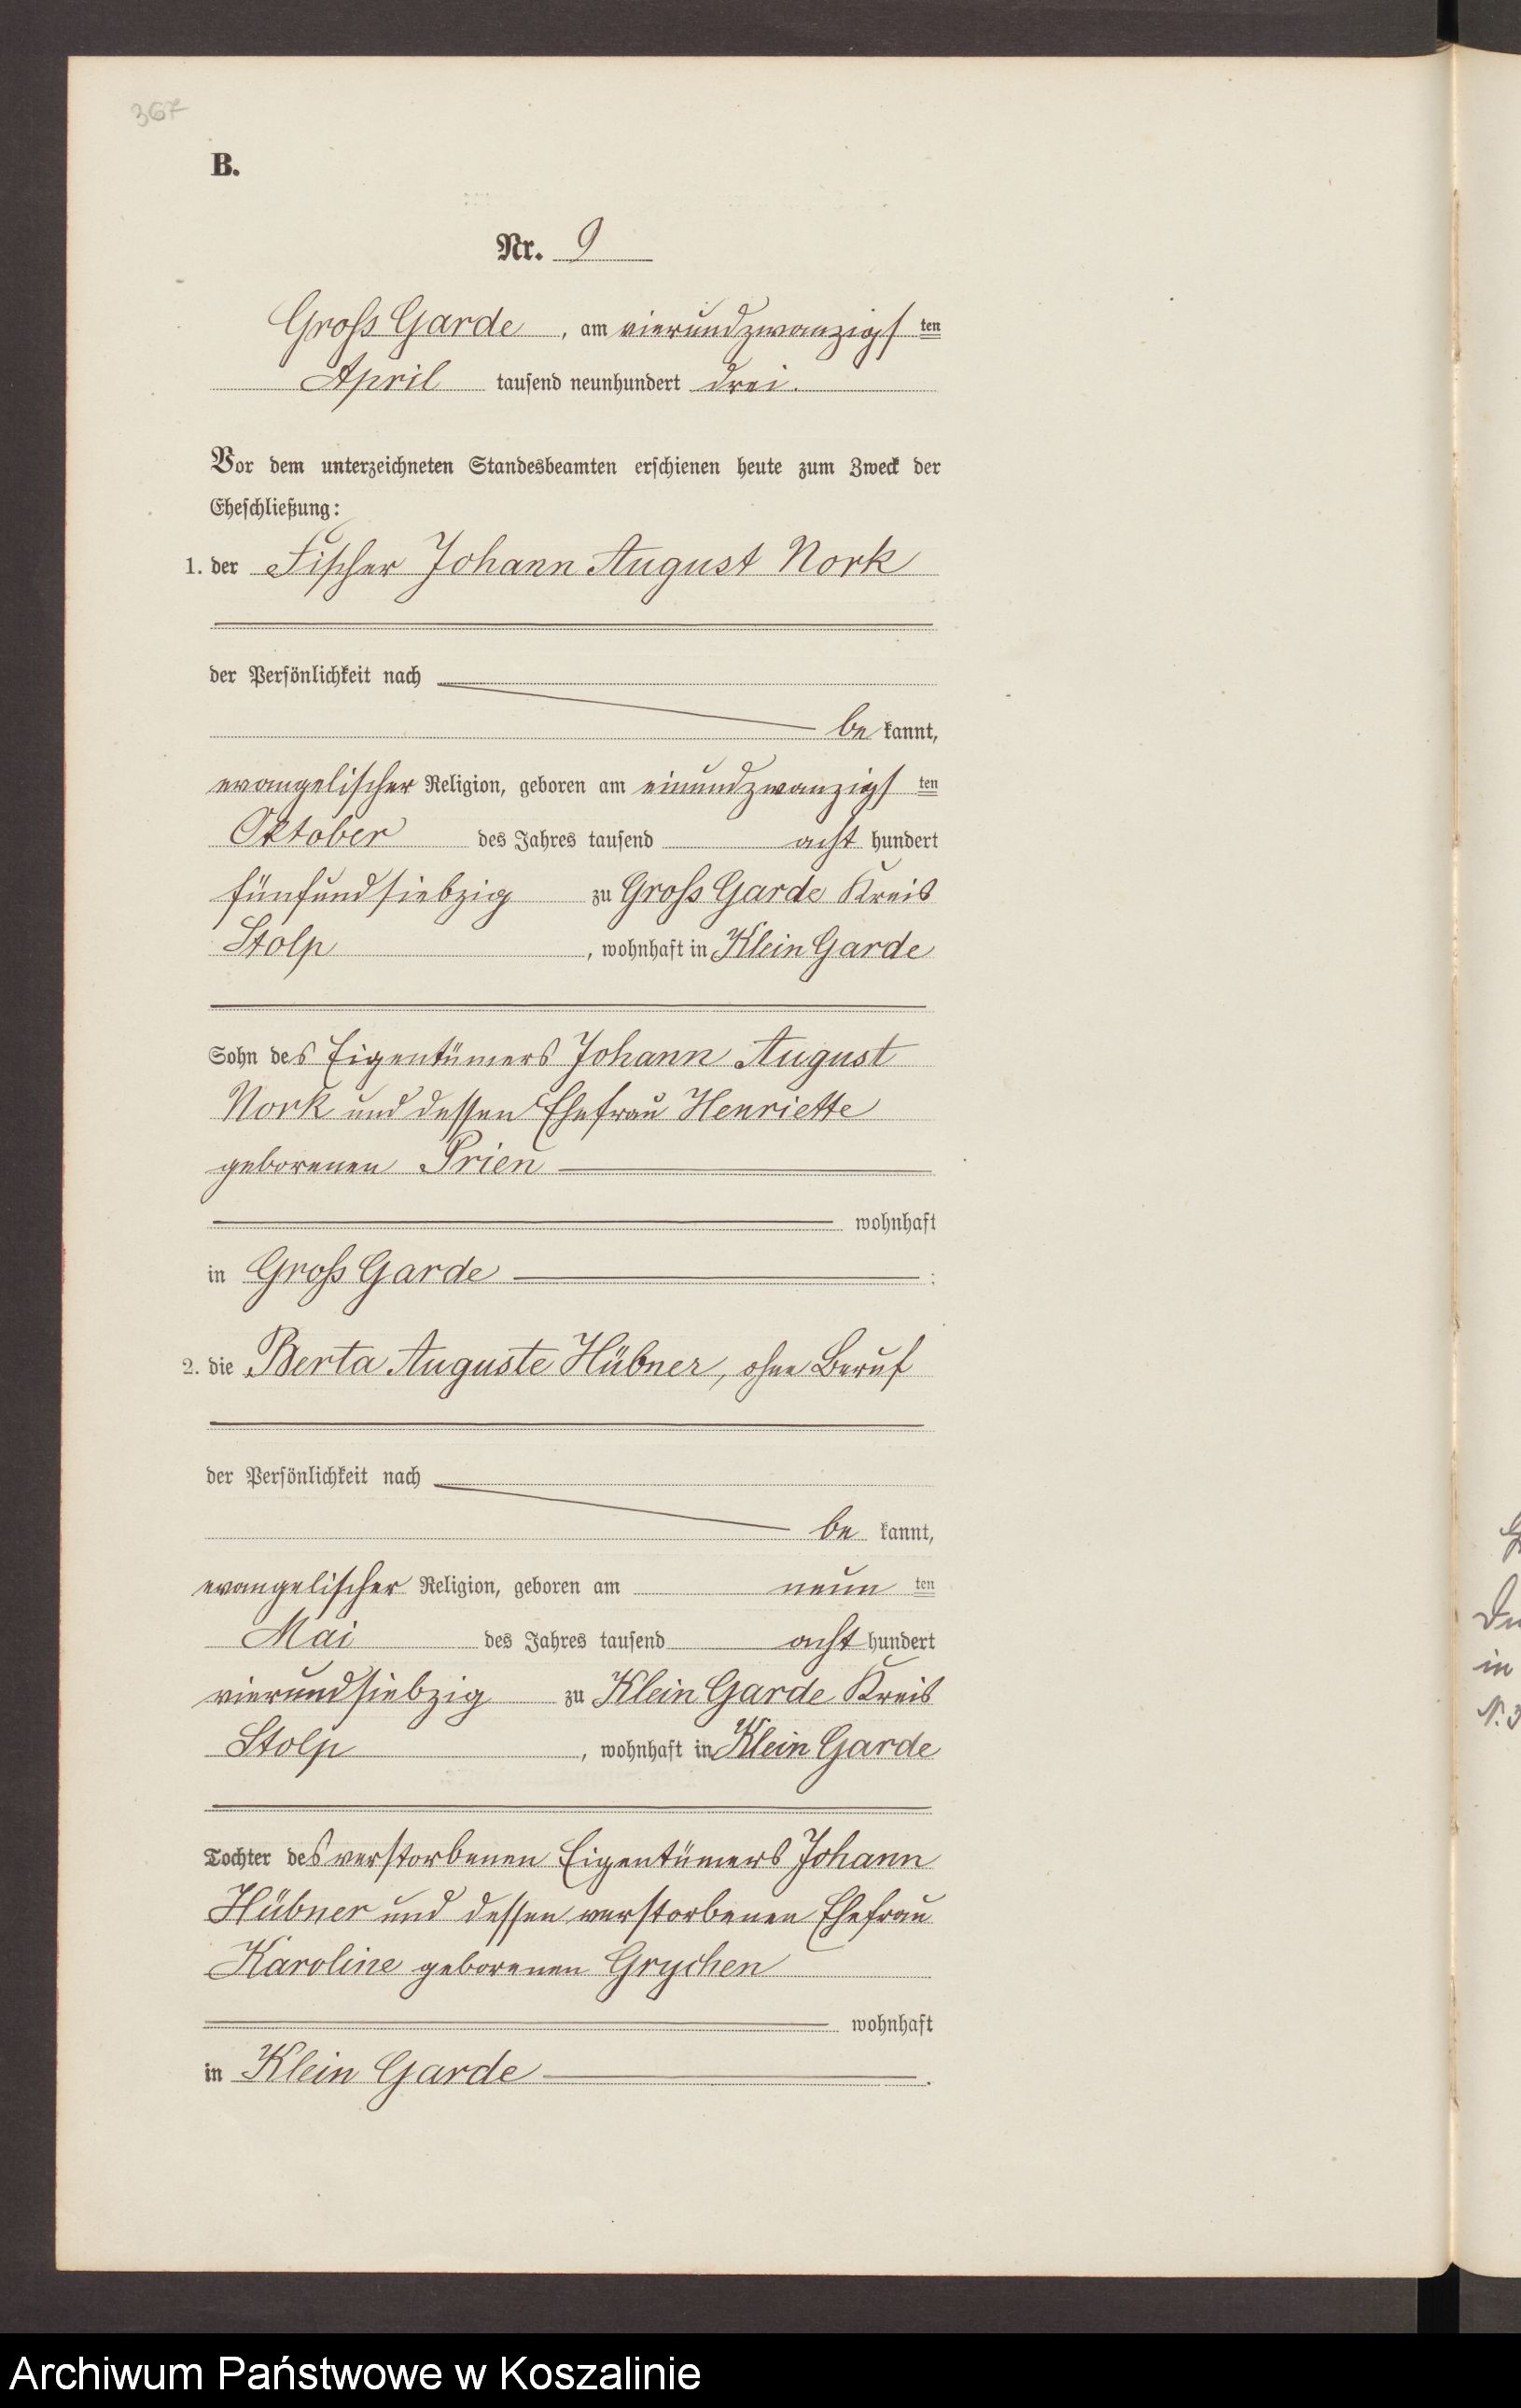 367
B.
Nr. 9
Gross Garde, am vierundzwanzigsten
April tausend neunhundert drei.
Vor dem unterzeichneten Standesbeamten erschienen heute zum Zweck der
Eheschließung:
1. der Fischer Johann August Nork
der Persönlichkeit nach
be kannt,
evangelischer Religion, geboren am einundzwanzigsten
Oktober des Jahres tausend acht hundert
fünfundsiebzig zu Gross Garde Kreis
Stolp, wohnhaft in Klein Garde
Sohn des Eigentümers Johann August
Nork und dessen Ehefrau Henriette
geborenen Prien
wohnhaft
in Gross Garde :
2. die Berta Auguste Hübner, ohne Beruf
der Persönlichkeit nach
be kannt,
evangelischer Religion, geboren am neunten
Mai des Jahres tausend acht hundert
vierundsiebzig zu Klein Garde Kreis
Stolp, wohnhaft in Klein Garde
Tochter des verstorbenen Eigentümers Johann
Hübner und dessen verstorbenen Ehefrau
Karoline geborenen Grychen
wohnhaft
in Klein Garde.
in
Archiwum Państwowe w Koszalinie